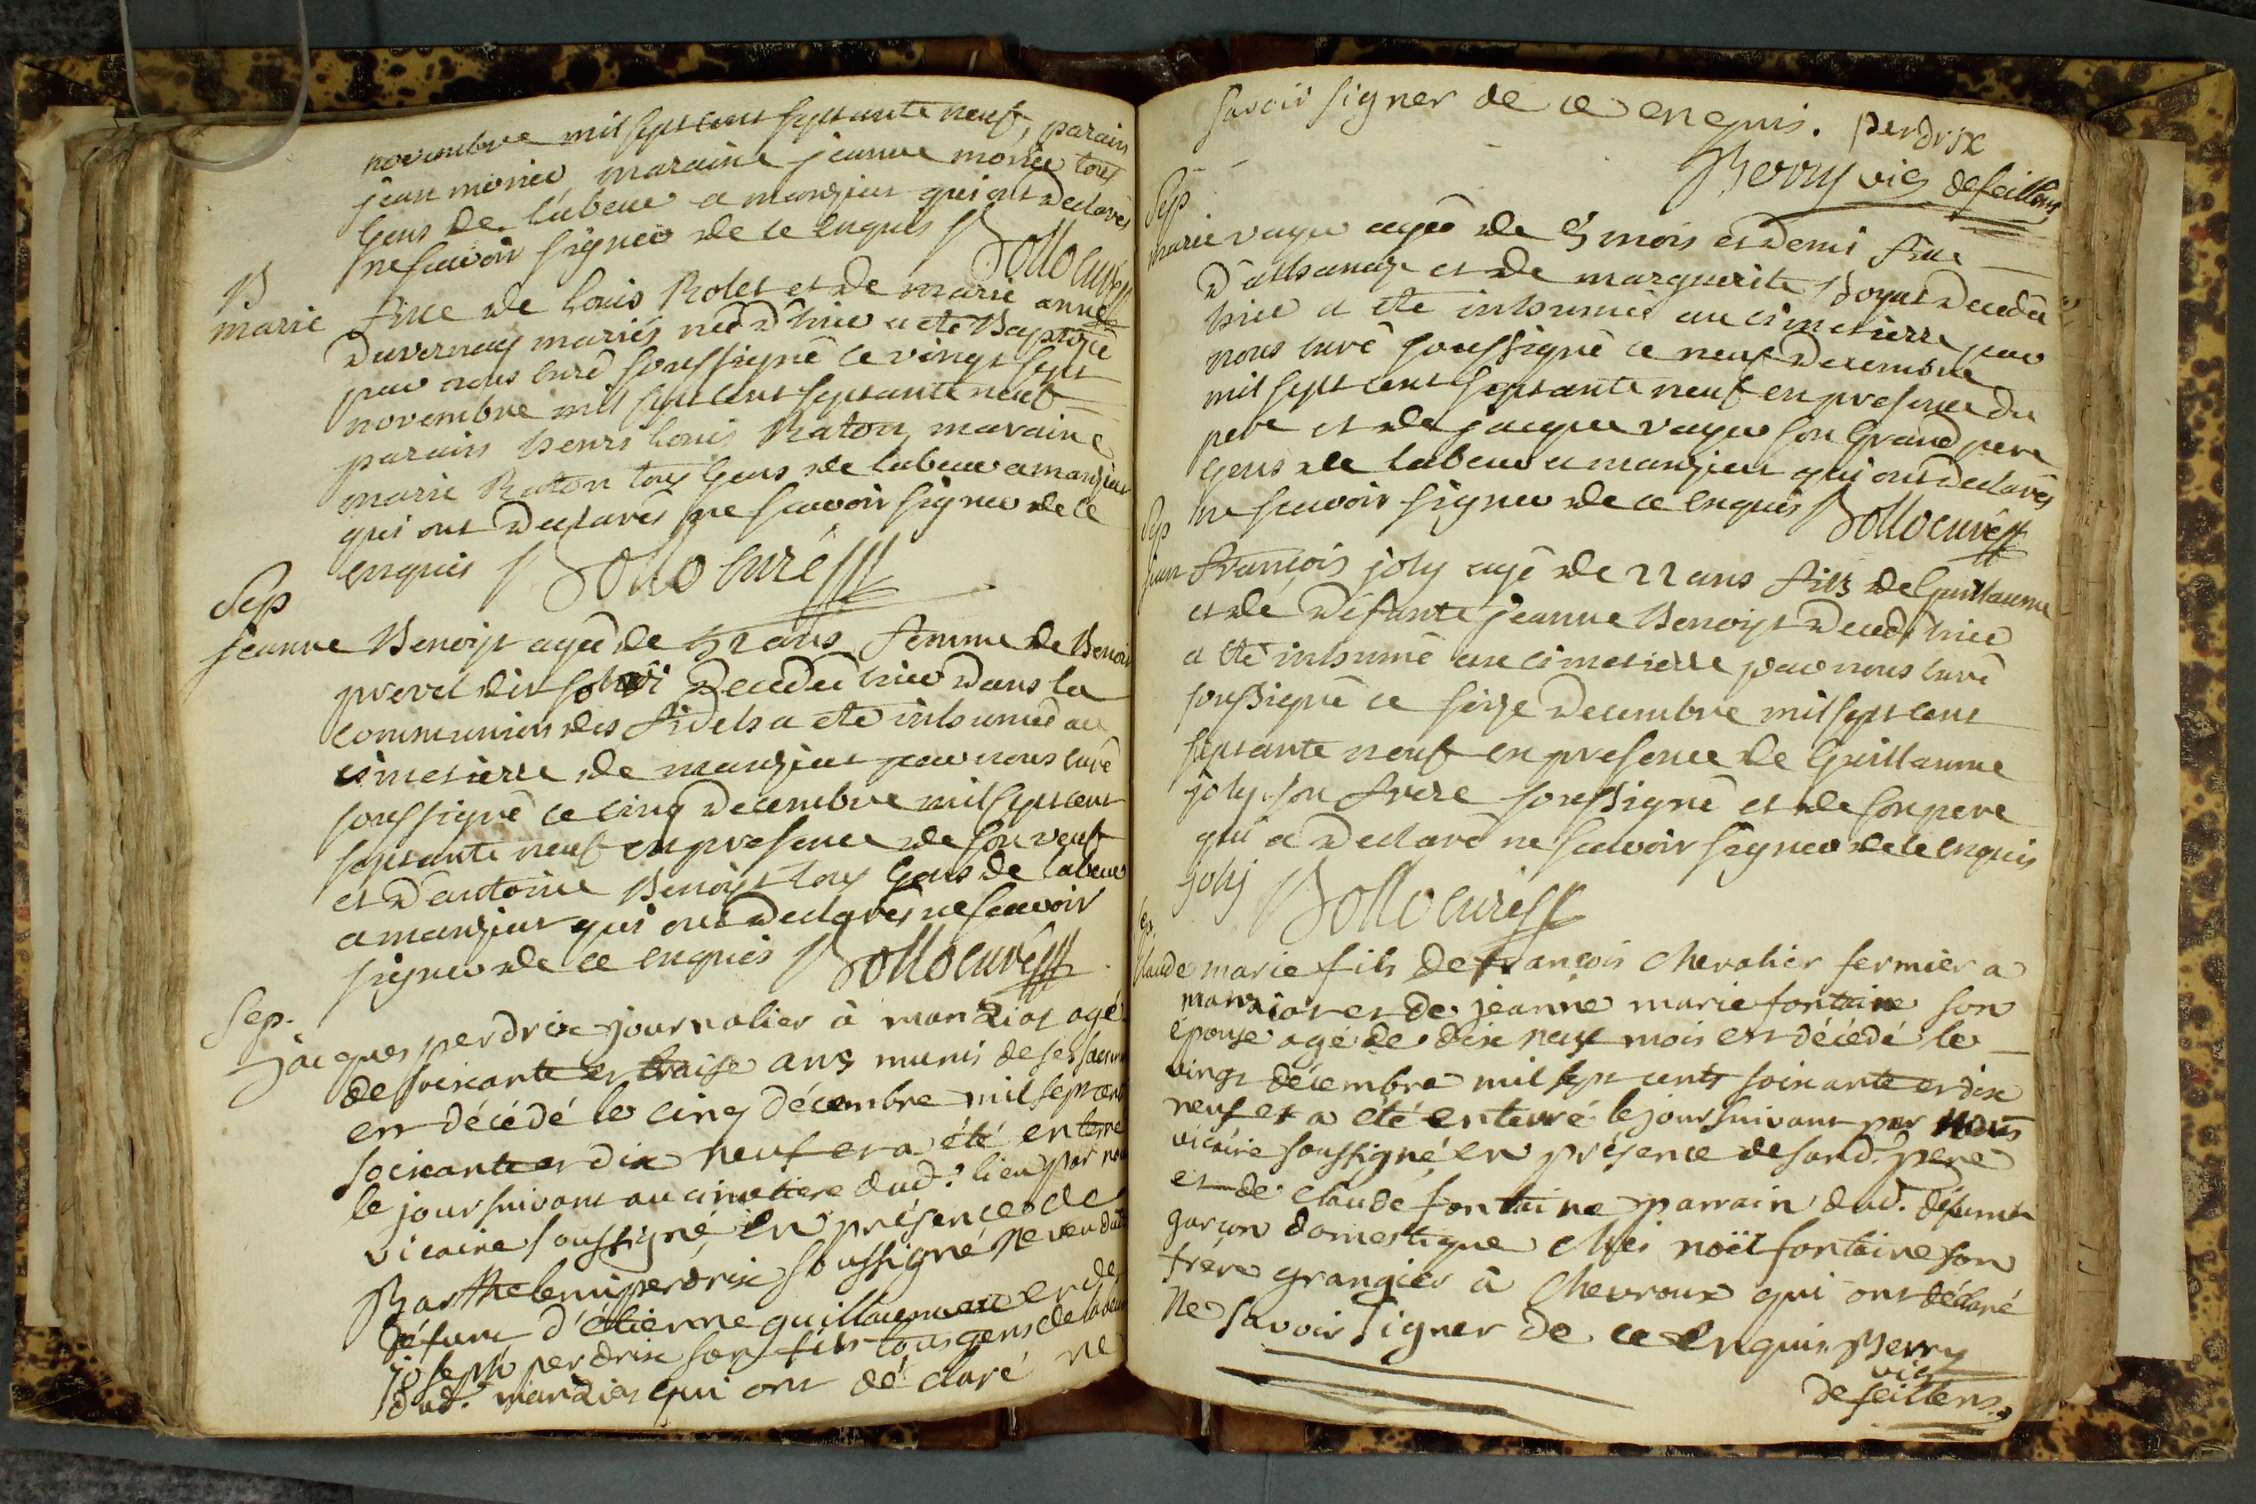 novembre mil sept cent septante neuf, parain
jean monier maraine jeanne monier tous
Gens de labeur a manziat qui ont declarés
ne scavoir signer de ce enquis Bollo curé
B
marie fille de louis Rolet et de marie anne
Duvernay mariés née d'hier a été Baptisée
par nous curé soussigné ce vingt sept
novembre mil sept cent septante neuf
parain henri louis Raton maraine
marie Raton tous Gens de labeur a manziat
qui ont declarés ne scavoir signer de ce
enquis Bollo curé
Sep
jeanne Benoist agée de 52 ans femme de Benoit
prevel dit decedée hier dans la
communion des fidels a été inhumée au
cimetierre de manziat par nous curé
soussigné ce cinq decembre mil sept cent
septante neuf en presence de son veuf
et d'antoine Benoist tous Gens de labeur
a manziat qui ont declarés ne scavoir
signer de ce enquis Bollo curé
Sep.
jacques perdrix journalier à manziat agé
de soixante et traise ans munis de ses sacrem
est décédé le cinq décembre mil sept cent
soixante et dix neuf et a été enterré
le jour suivant au cimetiere dud. lieu par nou
vicaire soussigné en présence de
Barthelemi perdrix soussigné neveu dud
défunt d'étienne guillaumeau et de
joseph perdrix son fils tous gens de labeur
dud. manziat qui ont déclaré ne
savoir signer de ce enquis. perdrix
Berry vic de feillens
Sep
marie vayer agée de 5 mois et demi fille
d'athanaze et de marguerite Boyat decedée
hier a été inhumée au cimetierre par
nous curé soussigné ce neuf decembre
mil sept cent septante neuf en presence du
pere et de jacque vayer son Grand pere
Gens de labeur a manziat qui ont declarés
ne scavoir signer de ce enquis Bollo curé
Sep
jean françois joly agé de 22 ans fils de Guillaume
et de défunte jeanne Benoist decedé hier
a été inhumé au cimetierre par nous curé
soussigné ce seize decembre mil sept cent
septante neuf en presence de Guillaume
joly son frere soussigné et de son pere
qui a declaré ne scavoir signer de ce enquis
joly Bollo curé
Sep.
Claude marie fils de françois chevalier fermier a
manziat et de jeanne marie fontaine son
épouse agé de dix neuf mois est décédé le
vingt décembre mil sept cents soixante et dix
neuf et a été enterré le jour suivant par nous
vicaire soussigné en présence de sond. pere
et de claude fontaine parrain dud. défunt
garçon domestique chès noël fontaine son
frère grangier à chevroux qui ont déclaré
ne savoir signer de ce enquis. Berry
vic
de feillens.